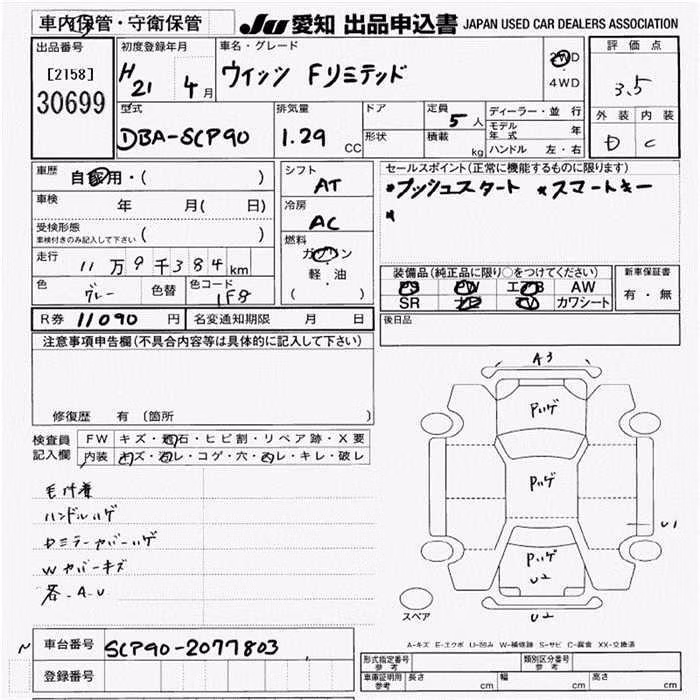 車内保管・守衛保管 JU 愛知 出品申込書 JAPAN USED CAR DEALERS ASSOCIATION
出品番号 [2158] 30699
初度登録年月 H21 4月
車名・グレード ウィッツ Fリミテッド
2WD ・ 4WD
評価点 3.5
外装 内装
D C
型式 DBA-SCP90
排気量 1.29 CC
ドア 形状
定員 5人
積載 kg
ディーラー・並行
モデル年式 年
ハンドル 左・右
車歴 自家用・( )
車検 年 月( 日)
受検形態 ( )
車検付きのみ記入して下さい
走行 11万9千384km
色 グレー 色替 色コード 1F8
シフト AT
冷房 AC
燃料 ガソリン
軽・油
( )
セールスポイント(正常に機能するものに限ります)
*プッシュスタート *スマートキー
*
装備品(純品に限り○をつけてください)
PS PW エアB AW
SR ナビ TV カワシート
新車保証書
有・無
R券 11090 円 名変通知期限 月 日
後日品
注意事項申告欄(不具合内容等は具体的に記入して下さい)
修復歴 有 〔箇所 〕
検査員記入欄
FW キズ・飛石・ヒビ割・リペア跡・X要
内装 キズ・汚レ・コゲ・穴・切レ・キレ・破レ
毛付着
ハンドルハゲ
Dミラーカバーハゲ
Wカバーキズ
各-A.U
A3
Pハゲ
Pハゲ
Pハゲ
U2
U1
U2
スペア
A-キズ E-エクボ U-凹み W-補修跡 S-サビ C-腐食 XX-交換済
車台番号 SCP90-2077803
登録番号
形式指定番号 参考 類別区分番号 参考
車庫証明用 参考 長さ cm 幅 cm 高さ cm